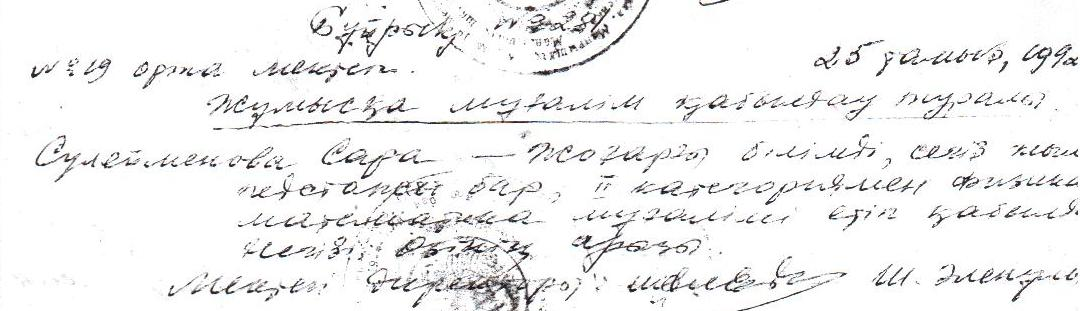 Бұйрық №
№ 19 орта мектеп. 25 тамыз, 199
Жұмысқа мұғалім қабылдау туралы.
Сулейменова Сара — Жоғары білімді, сегіз жыл
педстажы бар, II категориямен физика
математика мұғалімі етіп қабылда
Негізі: өзінің арызы.
Мектеп директоры: Ш.